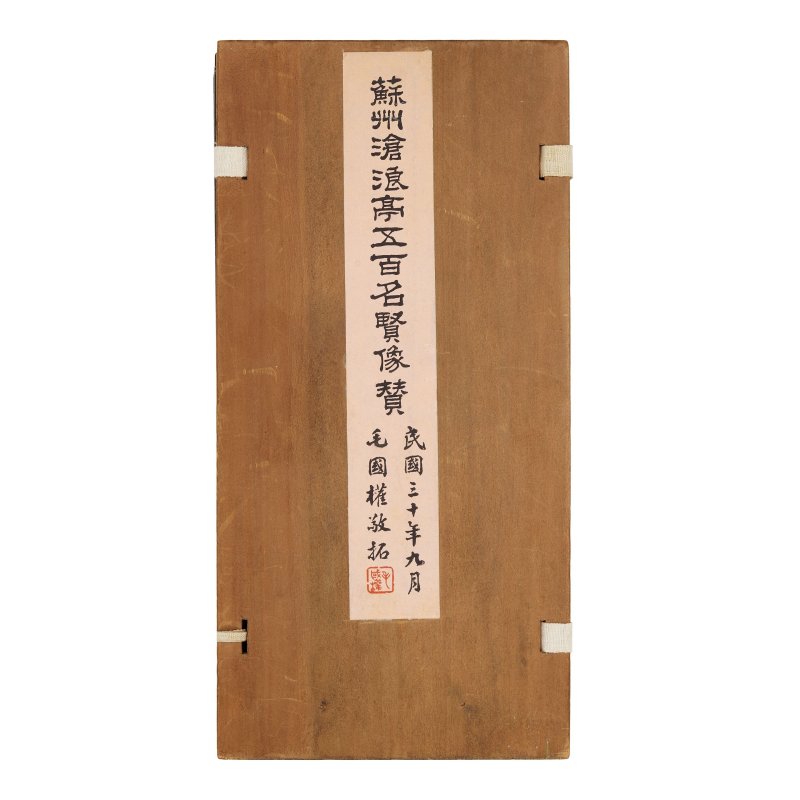 蘇州滄浪亭五百名賢像賛
民國三十年九月
毛國權敬拓